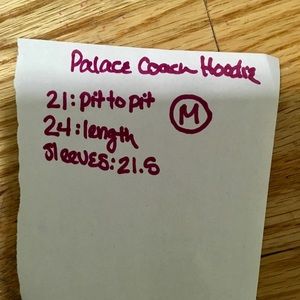 Palace Coach Hoodie
21: pit to pit
M
24: length
Sleeves: 21.5